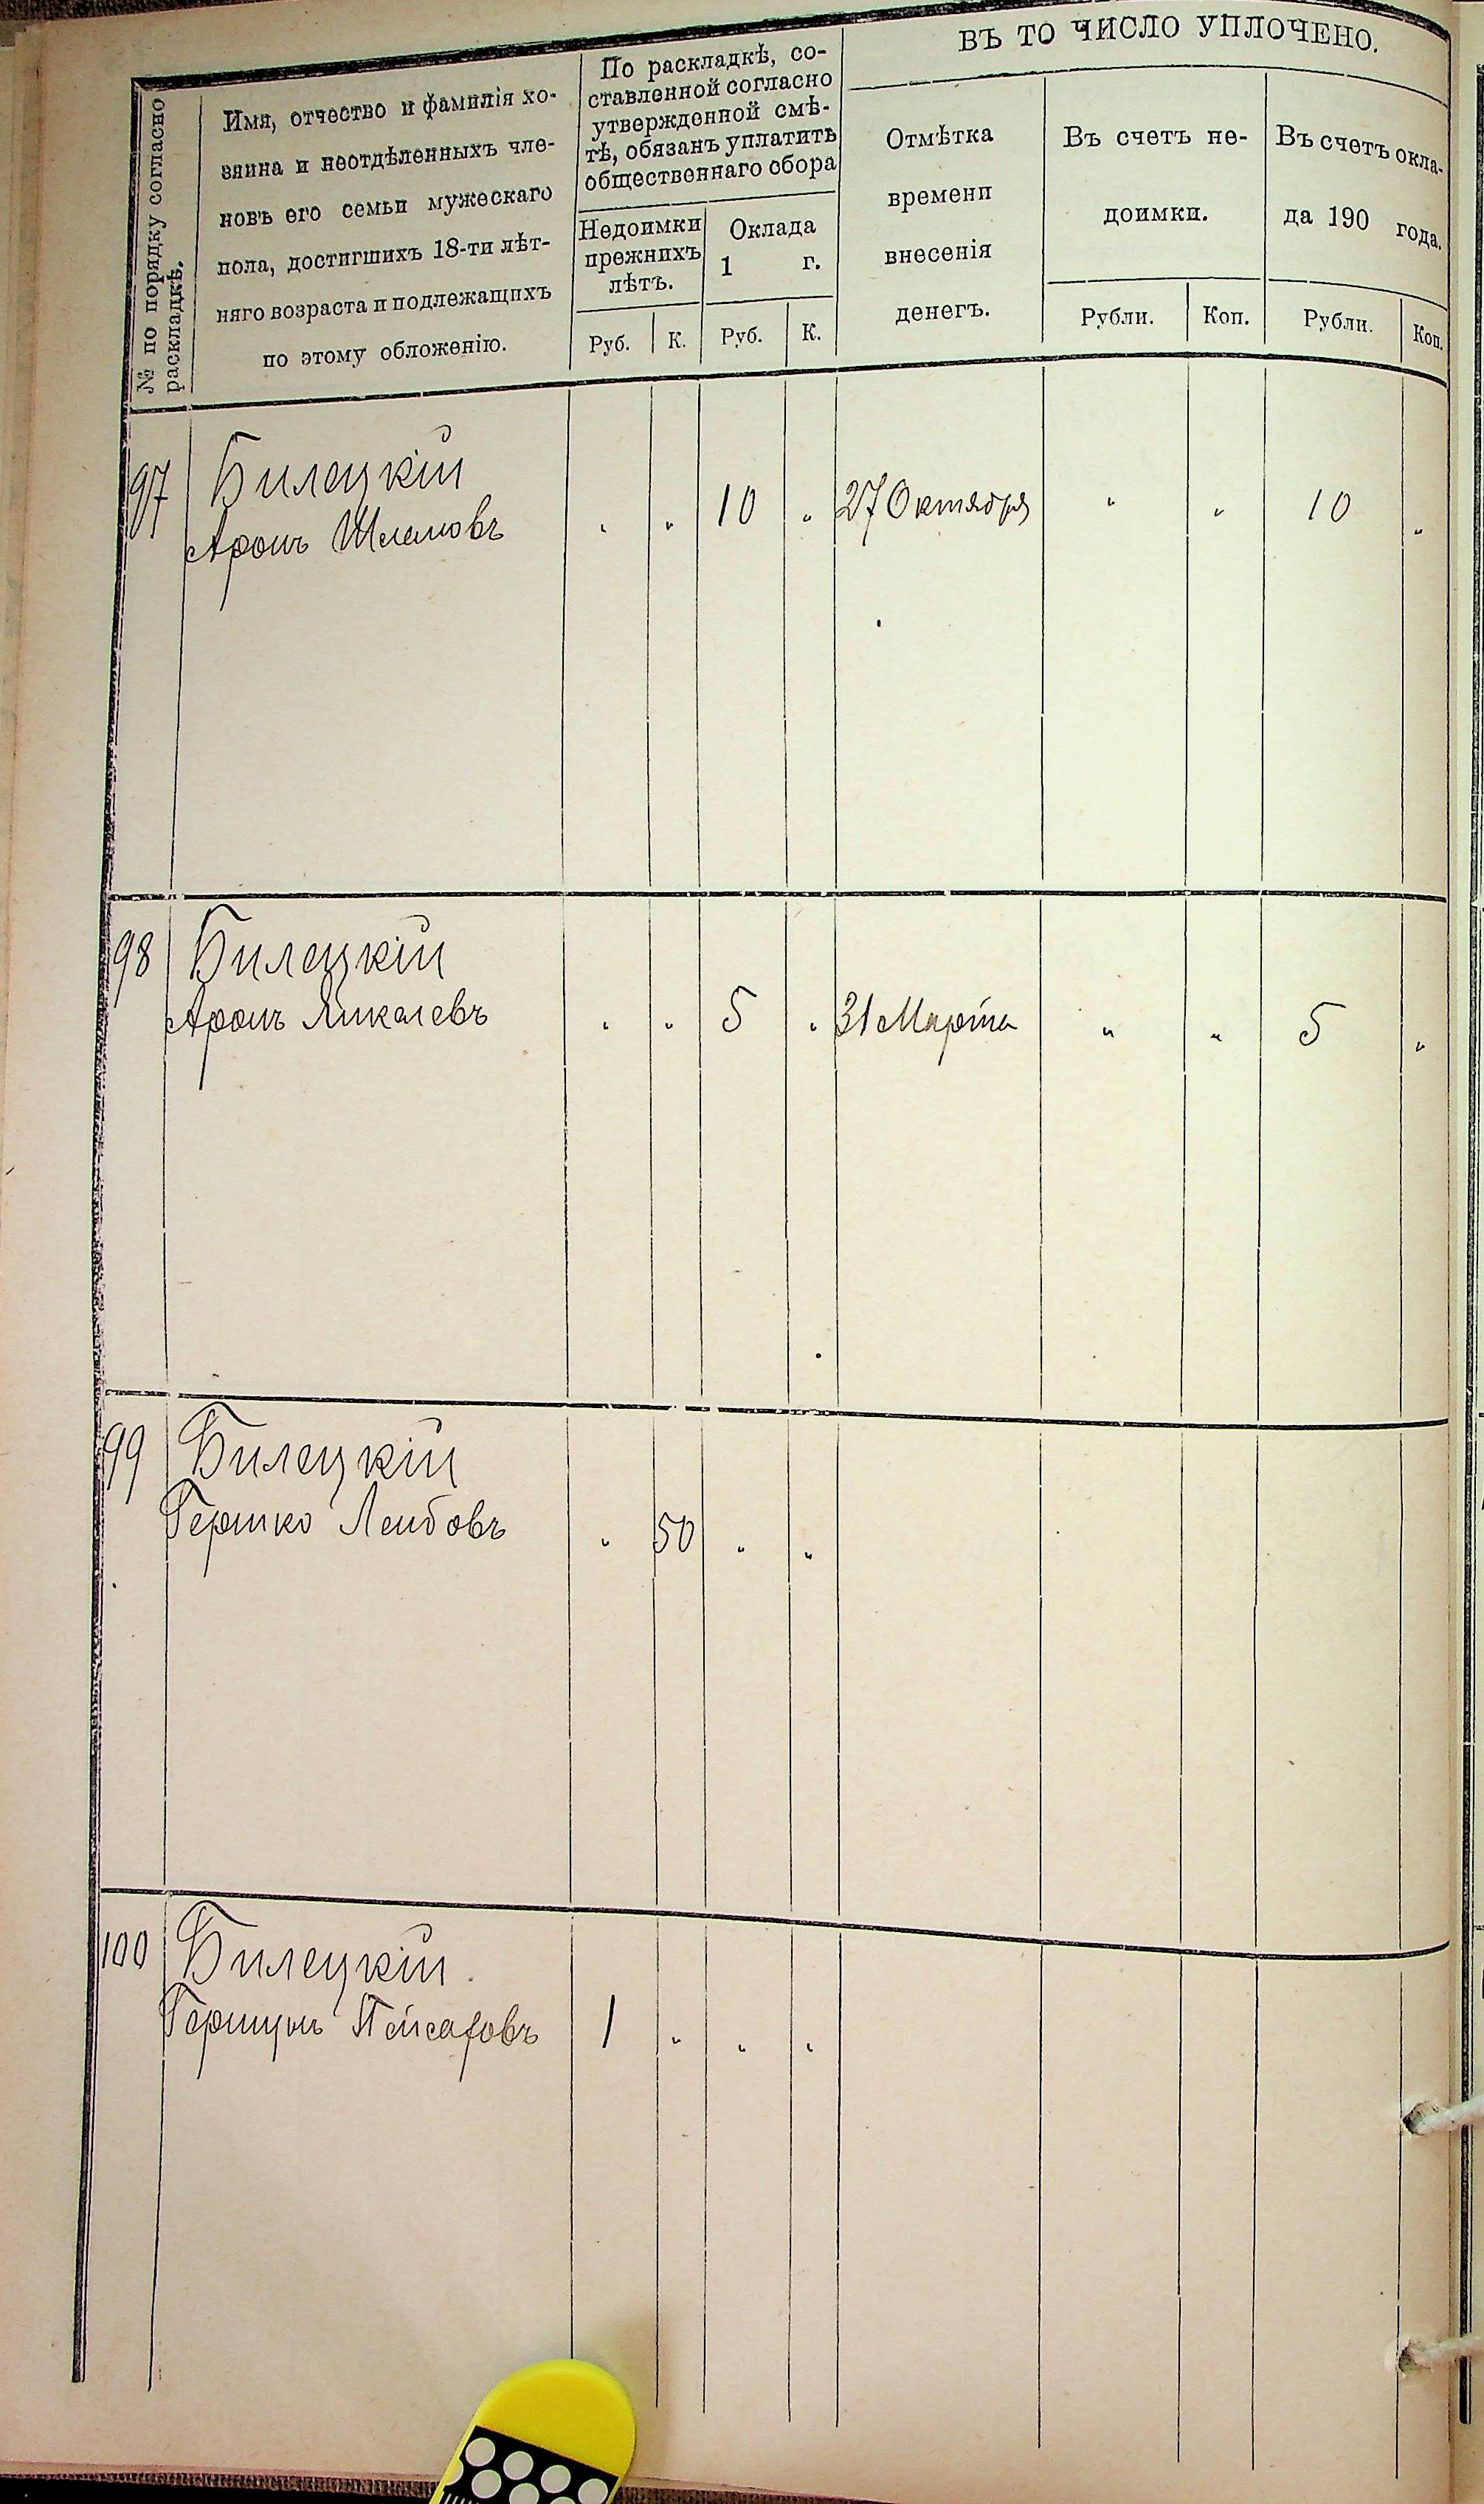 № по порядку согласно
раскладкѣ.
Имя, отчество и фамилія хо-
зяина и неотдѣленныхъ чле-
новъ его семьи мужескаго
пола, достигшихъ 18-ти лѣт-
няго возраста и подлежащихъ
по этому обложенію.
По раскладкѣ, со-
ставленной согласно
утвержденной смѣ-
тѣ, обязанъ уплатить
общественнаго сбора
Недоимки
прежнихъ
лѣтъ.
Руб. К.
Оклада
1 г.
Руб. К.
ВЪ ТО ЧИСЛО УПЛОЧЕНО.
Отмѣтка
времени
внесенія
денегъ.
Въ счетъ не-
доимки.
Рубли. Коп.
Въ счетъ окла-
да 190 года.
Рубли. Коп.
97 Билецкій
Аронъ Шлемовъ „ „ 10 „ 27 Октября „ „ 10 „
98 Билецкій
Аронъ „ „ 5 „ 31 Марта „ „ 5 „
99 Билецкій
Гершко Лейбовъ „ 50 „ „
100 Билецкій
Гершунъ Пейсаховъ 1 „ „ „